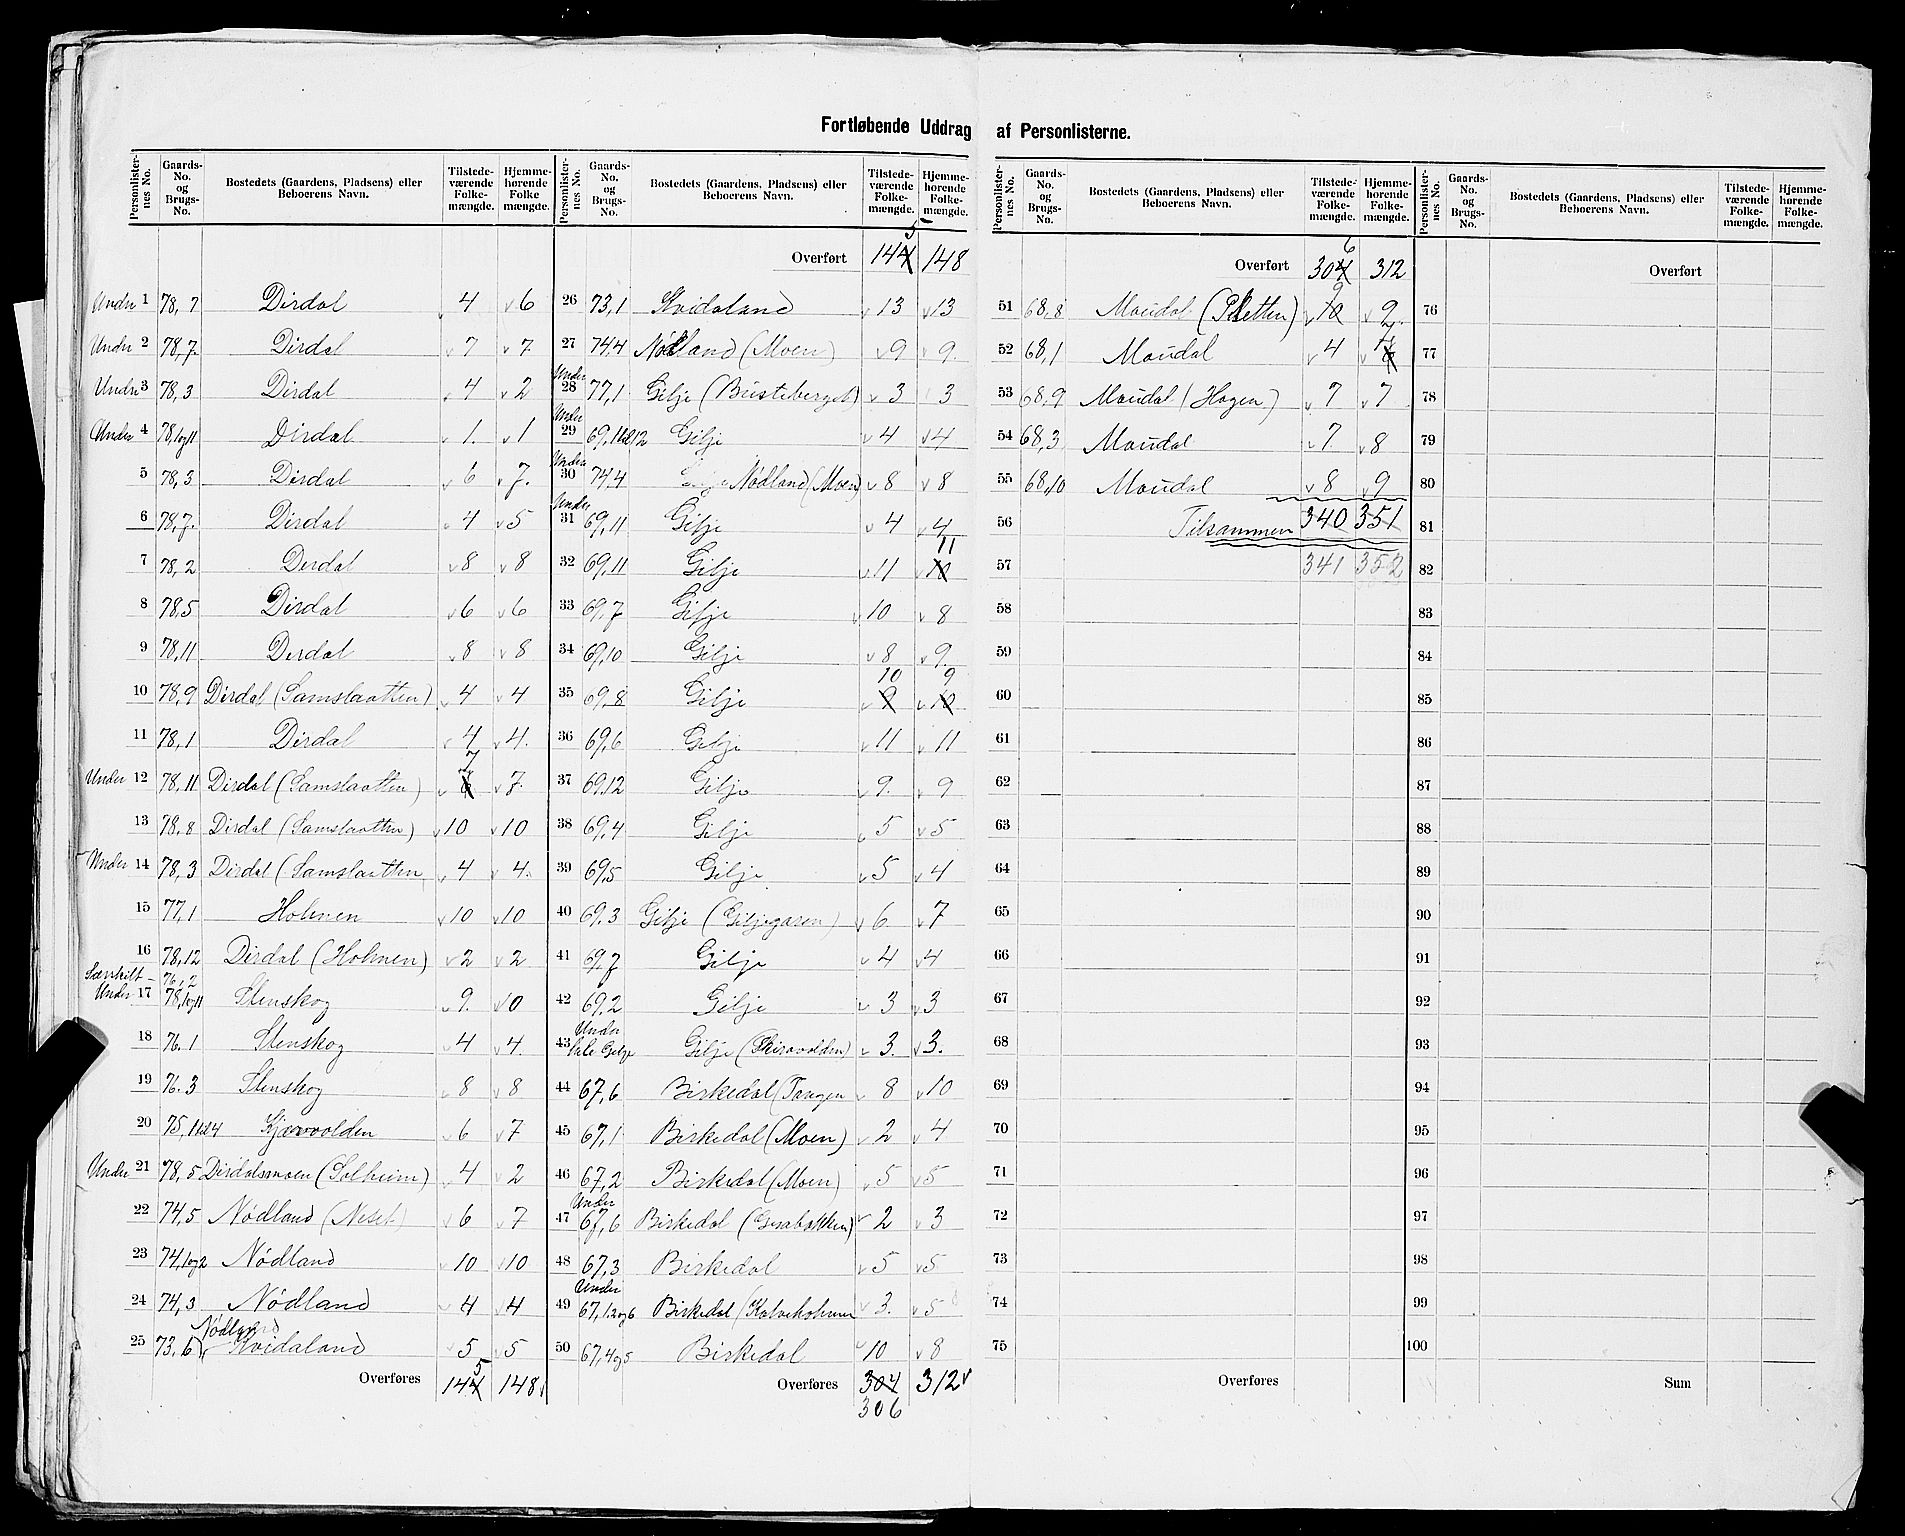 Fortløbende Uddrag af Personlisterne.
Personlisternes No. Gaards-No. og Brugs-No. Bostedets (Gaardens, Pladsens) eller Beboerens Navn. Tilstedeværende Folkemængde. Hjemmehørende Folkemængde.
Under 1 78,7 Dirdal 4 6
Under 2 78,7. Dirdal 7 7
Under 3 78,3 Dirdal 4 2
Under 4 78,1og11 Dirdal 1. 1
5 78,3 Dirdal 6 7.
6 78,7. Dirdal 4 5
7 78,2 Dirdal 8 8
8 78,5 Dirdal 6 6
9 78,11 Dirdal 8 8
10 78,9 Dirdal (Samslaatten) 4 4
11 78,1 Dirdal 4 4.
Under 12 78,11 Dirdal (Samslaatten) 6 7 7.
13 78,8 Dirdal (Samslaatten) 10 10
Under 14 78,3 Dirdal (Samslaatten 4 4.
15 77,1 Holmen 10 10
16 78,12 Dirdal (Holmen) 2 2
Særskilt – 76,2
Under 17 78,1og11 Stenskog 9. 10
18 76.1 Stenskog 4 4.
19 76.3 Stenskog 8 8
20 75,1til4 Kjærvolden 6 7
Under 21 78,5 Dirdalsmoen (Solheim) 4 2
22 74,5 Nødland (Neset) 6 7
23 74,1og2 Nødland 10 10
24 74,3 Nødland 4 4
Nødland
25 73.6 Kvidaland 5 5
Overføres 144 5 148
Personlisternes No. Gaards-No. og Brugs-No. Bostedets (Gaardens, Pladsens) eller Beboerens Navn. Tilstedeværende Folkemængde. Hjemmehørende Folkemængde.
Overført 144 5 148
26 73,1 Kvidaland 13 13
27 74,4 Nødland (Moen) 9 9.
Under
28 77,1 Gilje (Busteberget) 3 3
Under
29 69,11til12 Gilje 4 4
Under
30 74,4 Nødland (Moen) 8 8
Under
31 69,11 Gilje 4 4
32 69,11 Gilje 11 10 11
33 69,7 Gilje 10 8
34 69,10 Gilje 8 9.
35 69,8 Gilje 9 10 10 9
36 69,6 Gilje 11 11
37 69,12 Gilje 9. 9
38 69,4 Gilje 5 5
39 69,5 Gilje 5 4
40 69.3 Gilje (Giljegaren) 6 7
41 69,7 Gilje 4 4
42 69,2 Gilje 3 3
Under
43 hele Gilje Gilje (Skiravolden) 3. 3.
44 67,6 Birkedal (Tangen 8 10
45 67,1 Birkedal (Moen) 2 4
46 67,2 Birkedal (Moen) 5 5
Under
47 67,6 Birkedal (Gurabakken) 2 3
48 67,3 Birkedal 5 5
Under
49 67,1.2og6 Birkedal (Kalveholmen 3. 5
50 67,4og5 Birkedal 10 8
Overføres 304 312
306
Personlisternes No. Gaards-No. og Brugs-No. Bostedets (Gaardens, Pladsens) eller Beboerens Navn. Tilstedeværende Folkemængde. Hjemmehørende Folkemængde.
Overført 304 6 312
51 68,8 Maudal (Pletten) 10 9 9
52 68,1 Maudal 4 6 7
53 68,9 Maudal (Hagen) 7 7
54 68,3 Maudal 7. 8
55 68,10 Maudal 8 9
56 Tilsammen 340 351
57 341 352
58
59
60
61
62
63
64
65
66
67
68
69
70
71
72
73
74
75
Overføres
Personlisternes No. Gaards-No. og Brugs-No. Bostedets (Gaardens, Pladsens) eller Beboerens Navn. Tilstedeværende Folkemængde. Hjemmehørende Folkemængde.
Overført
76
77
78
79
80
81
82
83
84
85
86
87
88
89
90
91
92
93
94
95
96
97
98
99
100
Sum